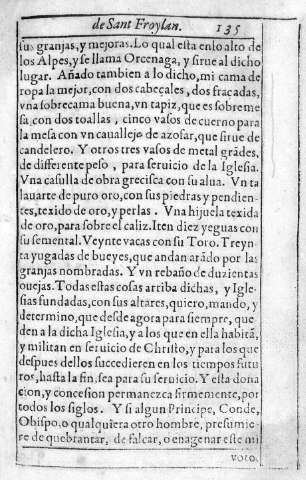 de Sant Froylan. 135
sus granjas, y mejoras. Lo qual esta en lo alto de
los Alpes, y se llama Orcenaga, y sirue al dicho
lugar. Añado tambien a lo dicho, mi cama de
ropa la mejor, con dos cabeçales, dos fraçadas,
vna sobrecama buena, vn tapiz, que es sobreme
sa, con dos toallas, cinco vasos de cuerno para
la mesa con vn cauallejo de azofar, que sirue de
candelero. Y otros tres vasos de metal grãdes,
de differente peso, para seruicio de la Iglesia.
Vna casulla de obra grecisca con su alua. Vn ta
lauarte de puro oro, con sus piedras y pendien-
tes, texido de oro, y perlas. Vna hijuela texida
de oro, para sobre el caliz. Iten diez yeguas con
su semental. Veynte vacas con su Toro. Treyn
ta yugadas de bueyes, que andan arãdo por las
granjas nombradas. Y vn rebaño de duzientas
ouejas. Todas estas cosas arriba dichas, y Igle-
sias fundadas, con sus altares, quiero, mando, y
determino, que desde agora para siempre, que
den a la dicha Iglesia, y a los que en ella habitã,
y militan en seruicio de Christo, y para los que
despues dellos succedieren en los tiempos futu
ros, hasta la fin, sea para su seruicio. Y esta dona
cion, y concesion permanezca firmemente, por
todos los siglos. Y si algun Principe, Conde,
Obispo, o qualquiera otro hombre, presumie-
re de quebrantar, de falcar, o enagenar este mi
voto.